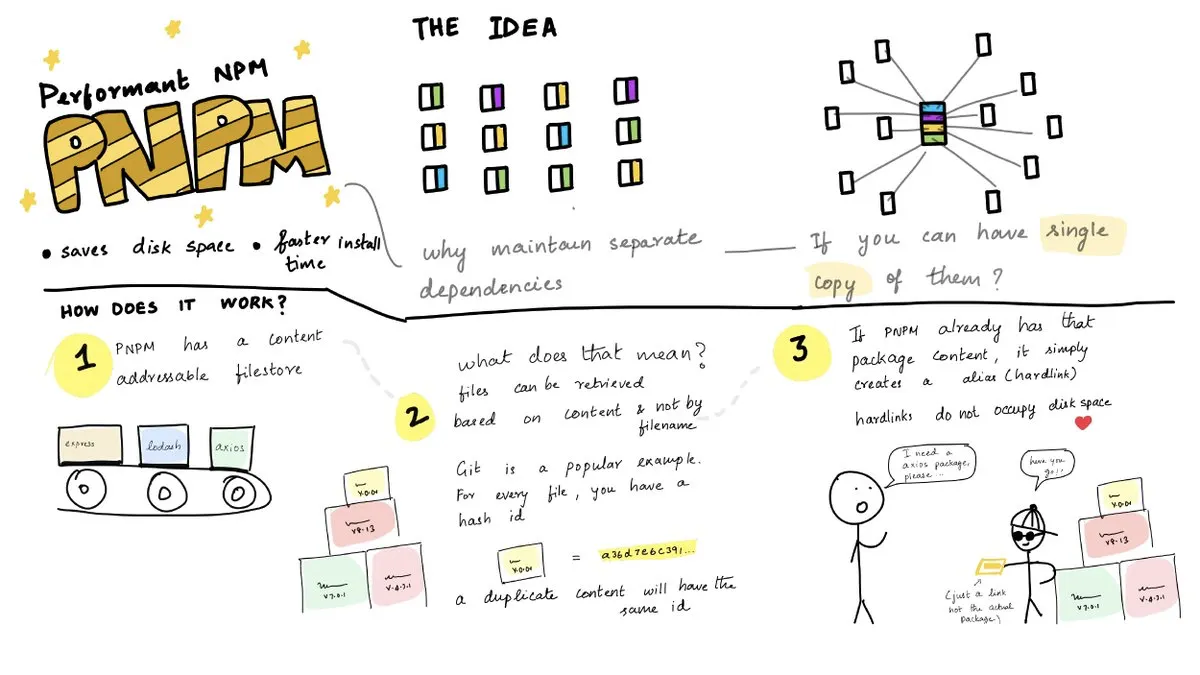 Performant NPM
PNPM
• saves disk space • faster install
time
THE IDEA
why maintain separate
dependencies
If you can have single
copy of them?
HOW DOES IT WORK?
1
PNPM has a content
addressable filestore
express
lodash
axios
2
what does that mean?
files can be retrieved
based on content & not by
filename
Git is a popular example.
For every file, you have a
hash id
V.0.01
V8.13
V7.0.1
V.4.3.1
V.0.01
= a36d7e6c391...
a duplicate content will have the
same id
3
If PNPM already has that
package content, it simply
creates a alias (hardlink)
hardlinks do not occupy disk space
I need a
axios package,
please...
here you
go!!
(just a link
not the actual
package)
V.0.01
V8.13
V7.0.1
V.4.3.1